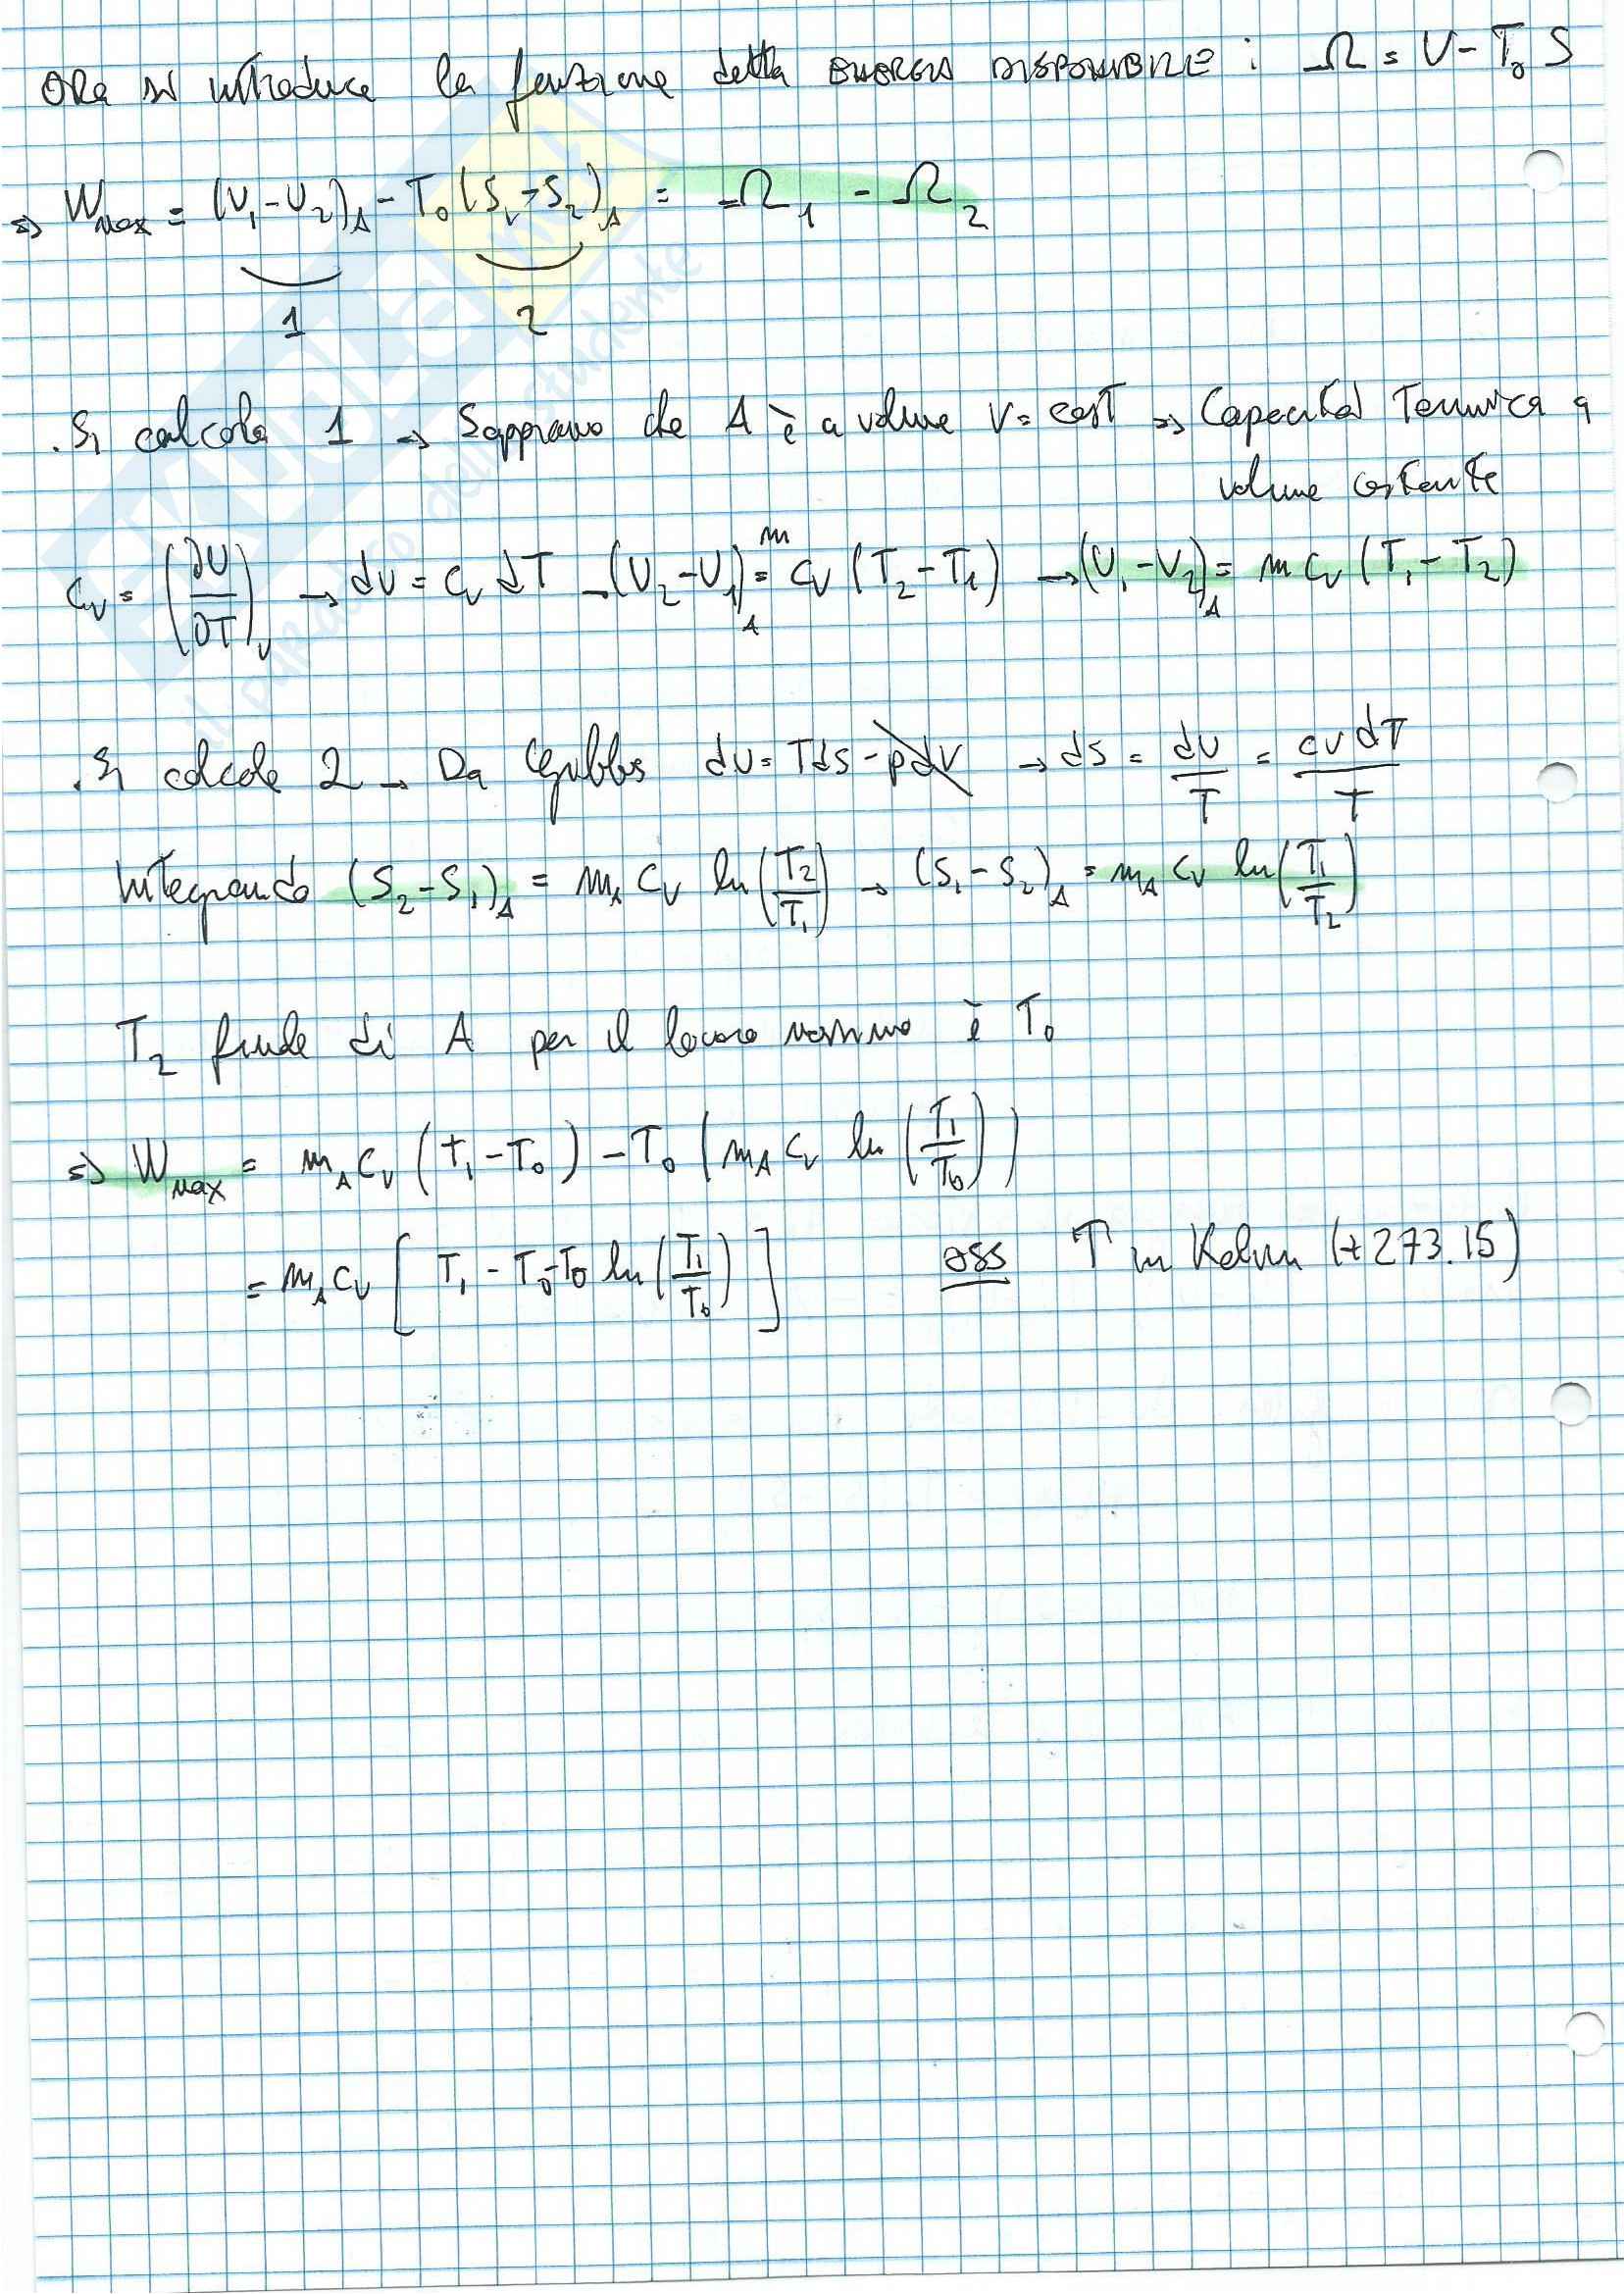 Ora si introduce la funzione detta ENERGIA DISPONIBILE : Ω = U - T₀ S
⇒ W_max = (U₁ - U₂)_A - T₀ (S₁ - S₂)_A = Ω₁ - Ω₂
1 2
. Si calcola 1 → Sappiamo che A è a volume V = cost ⇒ Capacità Termica a
volume costante
c_v = (∂U/∂T)_v → dU = c_v dT → (U₂ - U₁)_A = m c_v (T₂ - T₁) → (U₁ - U₂)_A = m c_v (T₁ - T₂)
. Si calcola 2 → Da Gibbs dU = TdS - pdV → dS = dU/T = cv dT/T
Integrando (S₂ - S₁)_A = m_A c_v ln(T₂/T₁) → (S₁ - S₂)_A = m_A c_v ln(T₁/T₂)
T₂ finale di A per il lavoro massimo è T₀
⇒ W_max = m_A c_v (T₁ - T₀) - T₀ (m_A c_v ln(T₁/T₀))
= m_A c_v [T₁ - T₀ - T₀ ln(T₁/T₀)] oss T in Kelvin (+273.15)